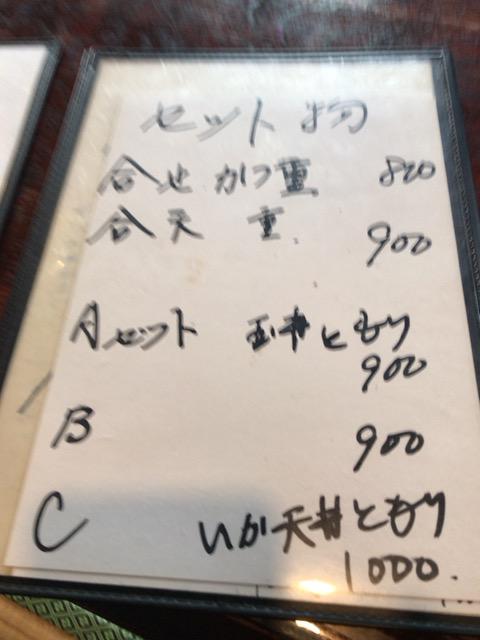 セット物
合せ かつ重 820
合天 重. 900
Aセット 玉丼ともり
900
B 900
C いか天丼ともり
1000.